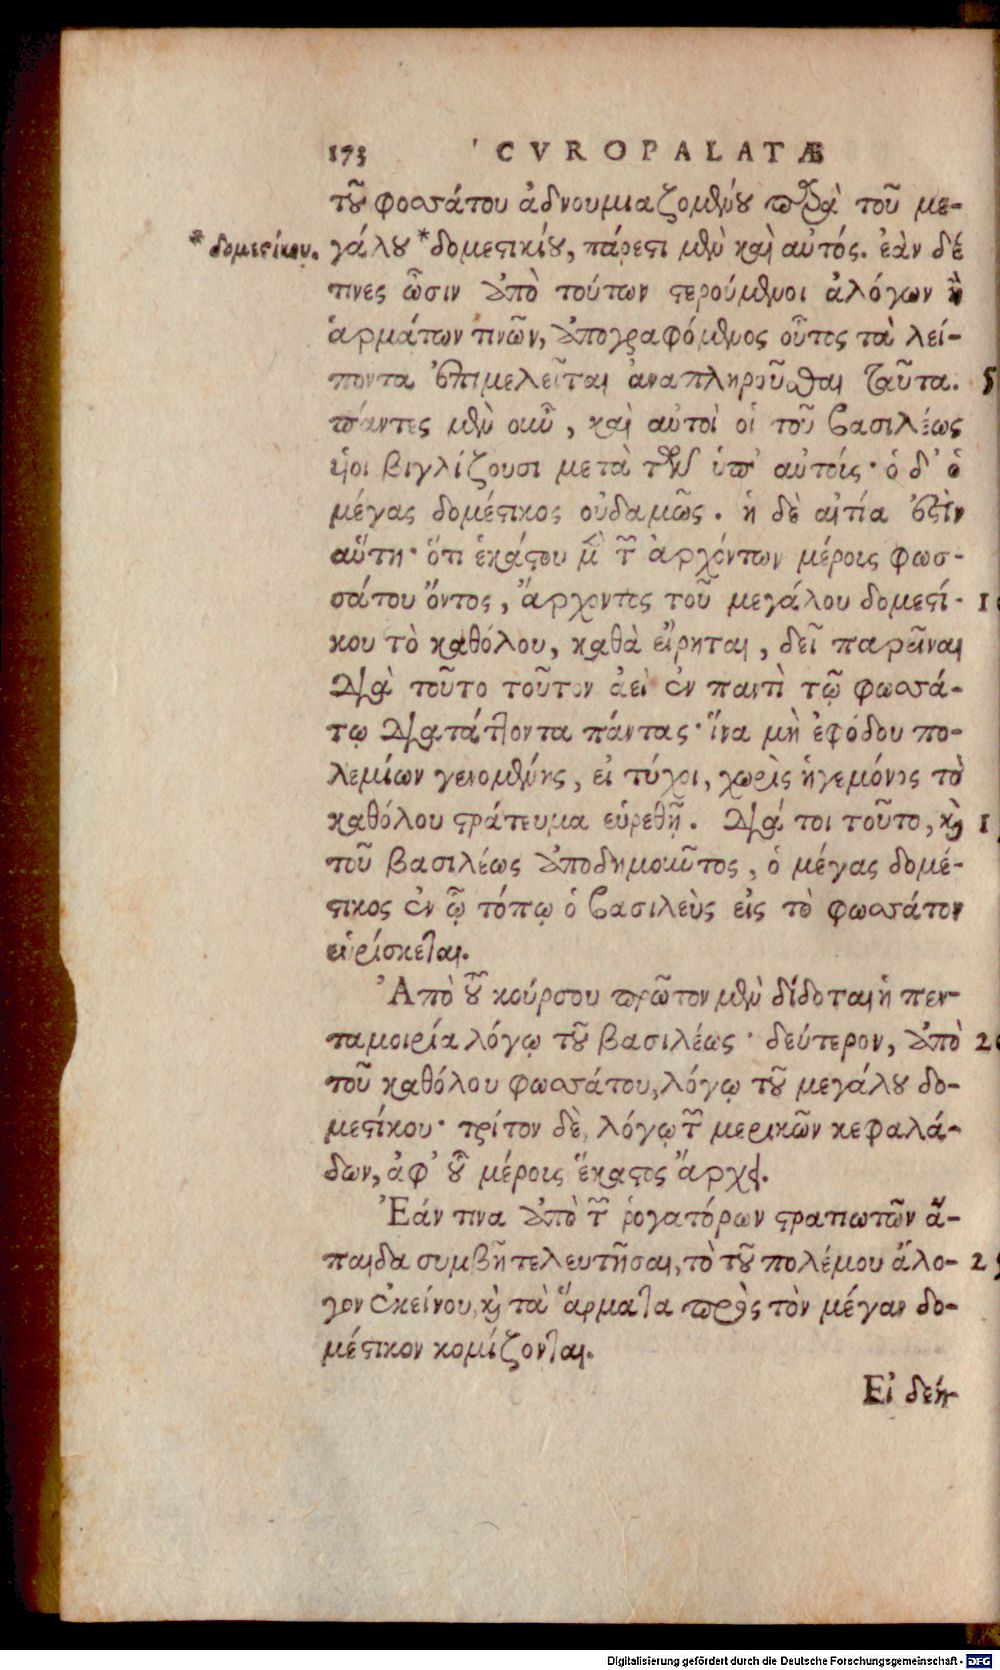 173 CVROPALATÆ
τοῦ φοσσάτου ἀδνουμιαζομένου παρὰ τοῦ με-
* δομεστίκου.
γάλου *δομεστικίου, πάρεστι μὲν καὶ αὐτός. ἐὰν δέ
τινες ὦσιν ἀπὸ τούτων στερούμενοι ἀλόγων ἢ
ἁρμάτων τινῶν, ἀπογραφόμενος οὗτος τὰ λεί-
ποντα ἐπιμελεῖται ἀναπληροῦσθαι ταῦτα. 5
πάντες μὲν οὖν, καὶ αὐτοὶ οἱ τοῦ βασιλέως
υἱοι βιγλίζουσι μετὰ τῶν ὑπ' αὐτοίς· ὁ δ' ὁ
μέγας δομέστικος οὐδαμῶς. ἡ δὲ αἰτία ἐστὶν
αὕτη· ὅτι ἑκάστου μὲν τῶν ἀρχόντων μέροις φωσ-
σάτου ὄντος, ἄρχοντος τοῦ μεγάλου δομεστί- 1
κου τὸ καθόλου, καθὰ εἴρηται, δεῖ παρεῖναι
διὰ τοῦτο τοῦτον ἀεὶ ἐν παντὶ τῷ φωσσά-
τῳ διατάττοντα πάντας· ἵνα μὴ ἐφόδου πο-
λεμίων γενομένης, εἰ τύχοι, χωρὶς ἡγεμόνος τὸ
καθόλου στράτευμα εὑρεθῇ. Διά τοι τοῦτο, καὶ 1
τοῦ βασιλέως ἀποδημοῦντος, ὁ μέγας δομέ-
στικος ἐν ᾧ τόπῳ ὁ βασιλεὺς εἰς τὸ φωσσάτον
εὑρίσκεται.
Ἀπὸ τοῦ κούρσου πρῶτον μὲν δίδοται ἡ πεν-
ταμοιρία λόγῳ τοῦ βασιλέως· δεύτερον, ἀπὸ 2
τοῦ καθόλου φωσσάτου, λόγῳ τοῦ μεγάλου δο-
μεστίκου· τρίτον δὲ, λόγῳ τῶν μερικῶν κεφαλά-
δων, ἀφ' οὗ μέροις ἕκαστος ἄρχει.
Ἐάν τινα ἀπὸ τῶν ῥογατόρων στρατιωτῶν ἄ-
παιδα συμβῇ τελευτῆσαι, τὸ τοῦ πολέμου ἄλο- 2
γον ἐκείνου, καὶ τὰ ἅρματα πρὸς τὸν μέγαν δο-
μέστικον κομίζονται.
Εἰ δέη
Digitalisierung gefördert durch die Deutsche Forschungsgemeinschaft - DFG